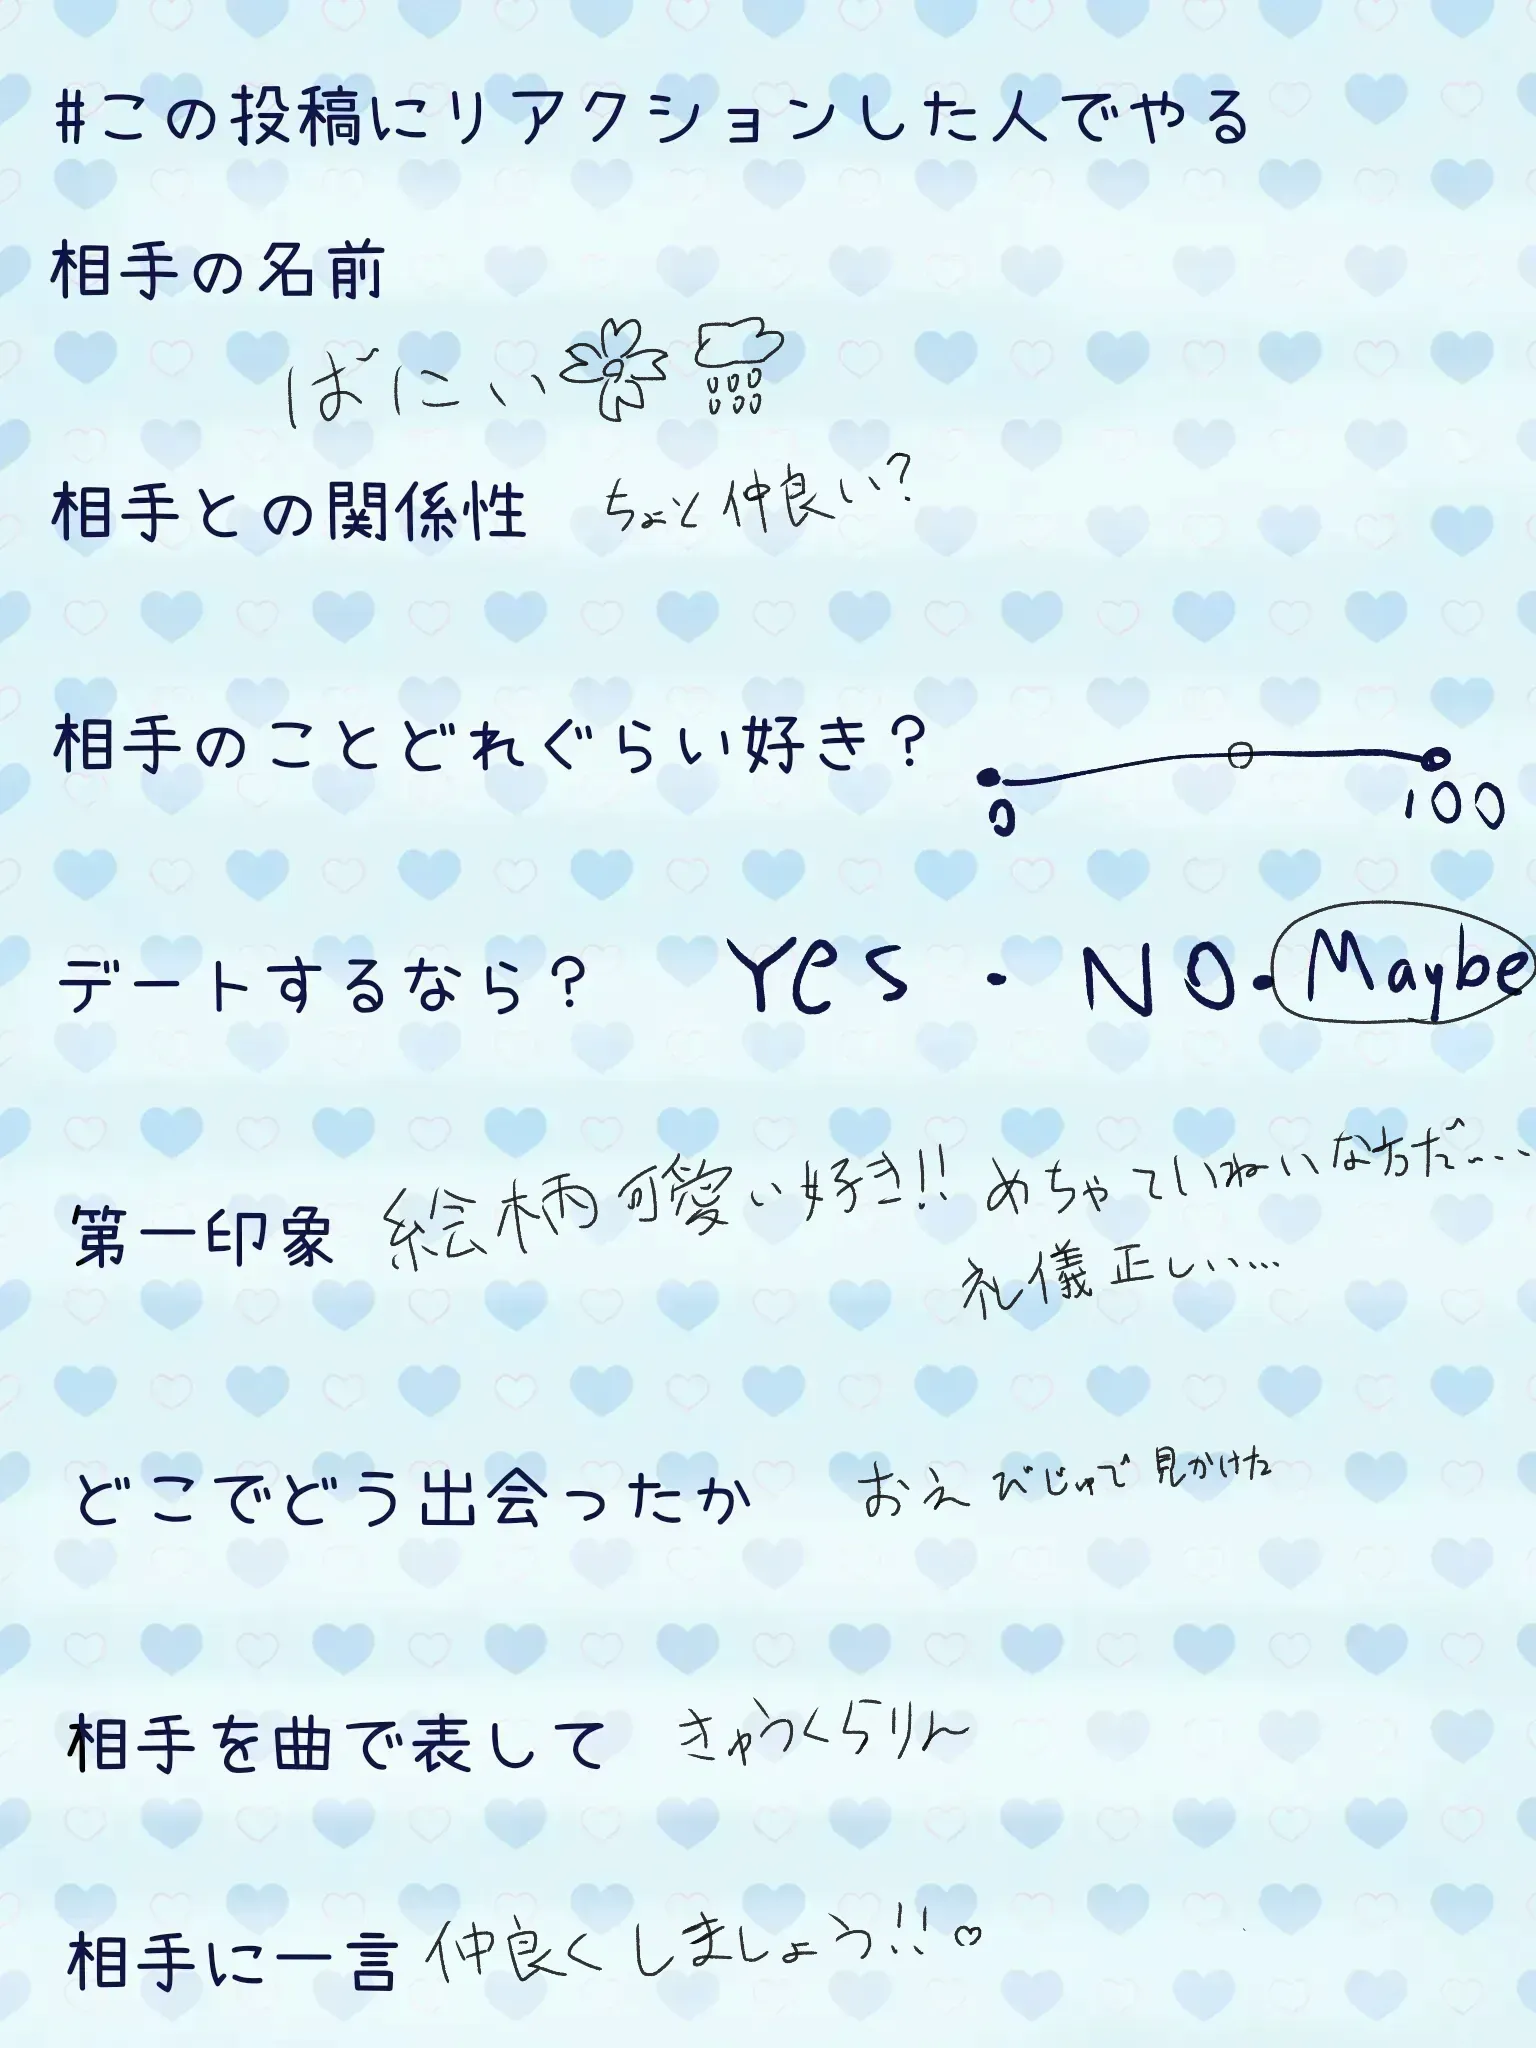 #この投稿にリアクションした人でやる
相手の名前
ばにぃ
相手との関係性 ちょと仲良い?
相手のことどれぐらい好き?
0 100
デートするなら? Yes・NO・Maybe
第一印象 絵柄可愛い好き!! めちゃていねいな方だ……
礼儀正しい…
どこでどう出会ったか おえびじゅで見かけた
相手を曲で表して きゅうくらりん
相手に一言 仲良くしましょう!!♡